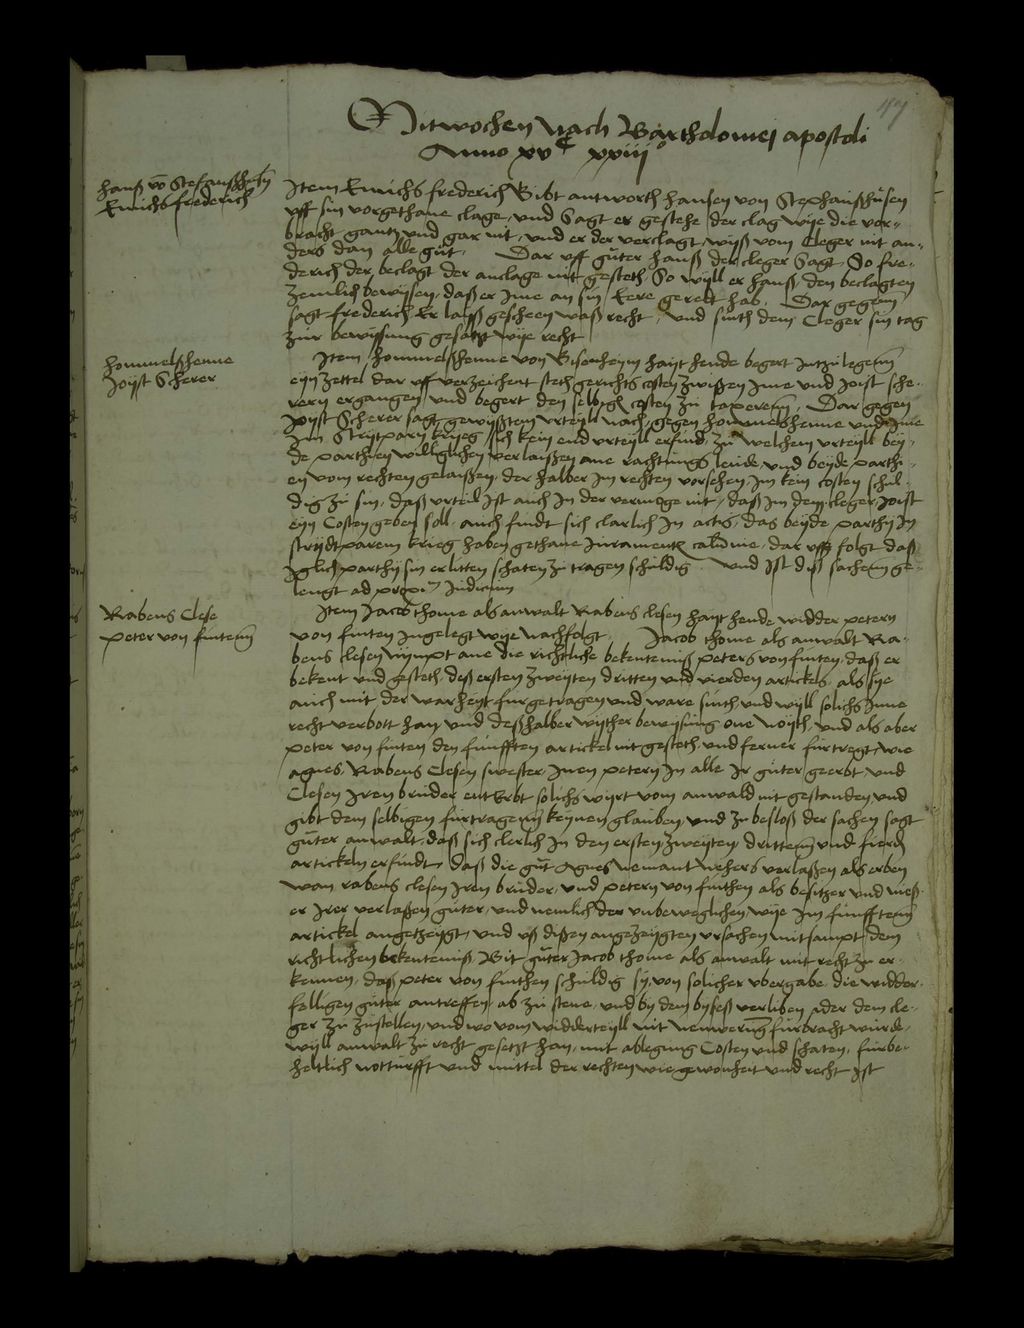 47
Mitwochen Nach Bartholomei apostoli
Anno xvc xxiiijo
Hanß vo Stefanßhusen
Emichs frederich
Item Emichs frederich Gibt antworth hansen von Stephanßhusen
vff sin vorgethane clage, vnd Sagt er gestehe der clag wye die vor-
bracht gantz vnd gar nit, vnd er der verclagt wyß vom Cleger nit an-
ders dan alle gut. Dar vff guter hanß der cleger Sagt So fre-
derich der beclagt der anclage nit gesteth So wyll er hanß den beclagten
zemlich bewysen, daß er Ime an sin Eere geredt hab. Dar gegen
sagt frederich Er lasß gescheen waß recht, vnd sinth dem Cleger sin tag
zur bewysung gesatzt wye recht
Hommelßhenne
Joyst Scherer
Item Hommelßhenne von Bisenheym hayt hende begert Intzulegern
eyn zettel dar vff verzeichent steth gerichts costen zwißen Ime vnd Joist sche-
rern ergangen vnd begert den selbigen costen zu taxerern. Dar gegen
Joyst Scherer sagt gewyßtem vrteyll nach, gegen hommelshenne vnd Ime
im Strytparn krieg sich kein end vrteyll erfind, zu welchem vrteyll bey-
de parthien willglichen verlaißen ane rachtungs leude, vnd beyde parthi-
en vom rechten gelaißen, der halber im rechten vorsehen Im kein costen schul-
dig zu sin, daß vrteil Ist auch In der vermoge nit, daß Im dem cleger Joist
eyn Costen geben soll, auch findt sich clarlich In actis, das beyde parthy In
strydtparem krieg haben gethane Iurament calumnie, dar vß folgt daß
Iglich parthy sin erlitten schaten zu tragen schuldig. vnd Ist diß sachem ge-
lengt ad proximum Iudicium
Rabens Clese
Peter von finten
Item Jacob thome als anwalt Rabens clesen hayt hende widder petern
von finten Ingelegt wye nachfolgt. Jacob thome als anwalt Ra-
bens clesen Nympt ane die richtliche bekentenis peters von finten, daß er
bekent vnd gesteth, deß ersten zweyten dritten vnd vierden artickels, als sye
auch mit der warheyt furgetragen vnd ware sinth vnd wyll solichs Inne
recht verbott han vnd deßhalber wyther bewysung one Noyth, vnd als aber
peter von finten den funfften artickel nit gesteth, vnd ferner furtregt, wie
agnes, Rabens Clesen swester, Inen petern In alle Ir guter geerbt, vnd
Clesen Iren bruder enterbt solichs wyrt vom anwald nit gestanden vnd
gibt dem selbigen furtragenn keynen glauben, vnd zu besloß der sachen sagt
guter anwalt, daß sich clerlich In den ersten, zweyten, drittenn vnd fierden
artickeln erfindt daß die gut Agnes Nemant Nehers verlaßen als erben
wan rabens clesen Iren bruder, vnd petern von finthen als besitzer vnd
er Irer verlaßen guter, vnd nemlich der vnbeweglichen wye Im funfftenn
artickel angetzeygt, vnd vß dißen angezeygten vrsachen mitsampt dem
richtlichen bekentenis, Bit guter Jacob thome als anwalt mit recht zu er-
kennen, daß peter von finthen schuldig sy, von solicher vbergabe, die widder-
felligen guter antreffen, ab zu stene, vnd by dem byseß verliben ader dem cle-
ger zu zustellen, vnd wo vom widderteyll nit furbracht wurde,
wyll anwalt zu recht gesetzt han, mit ablegung Costen vnd schaten, furbe-
heltlich notturfft vnd mittel der rechten wie gewonheit vnd recht Ist